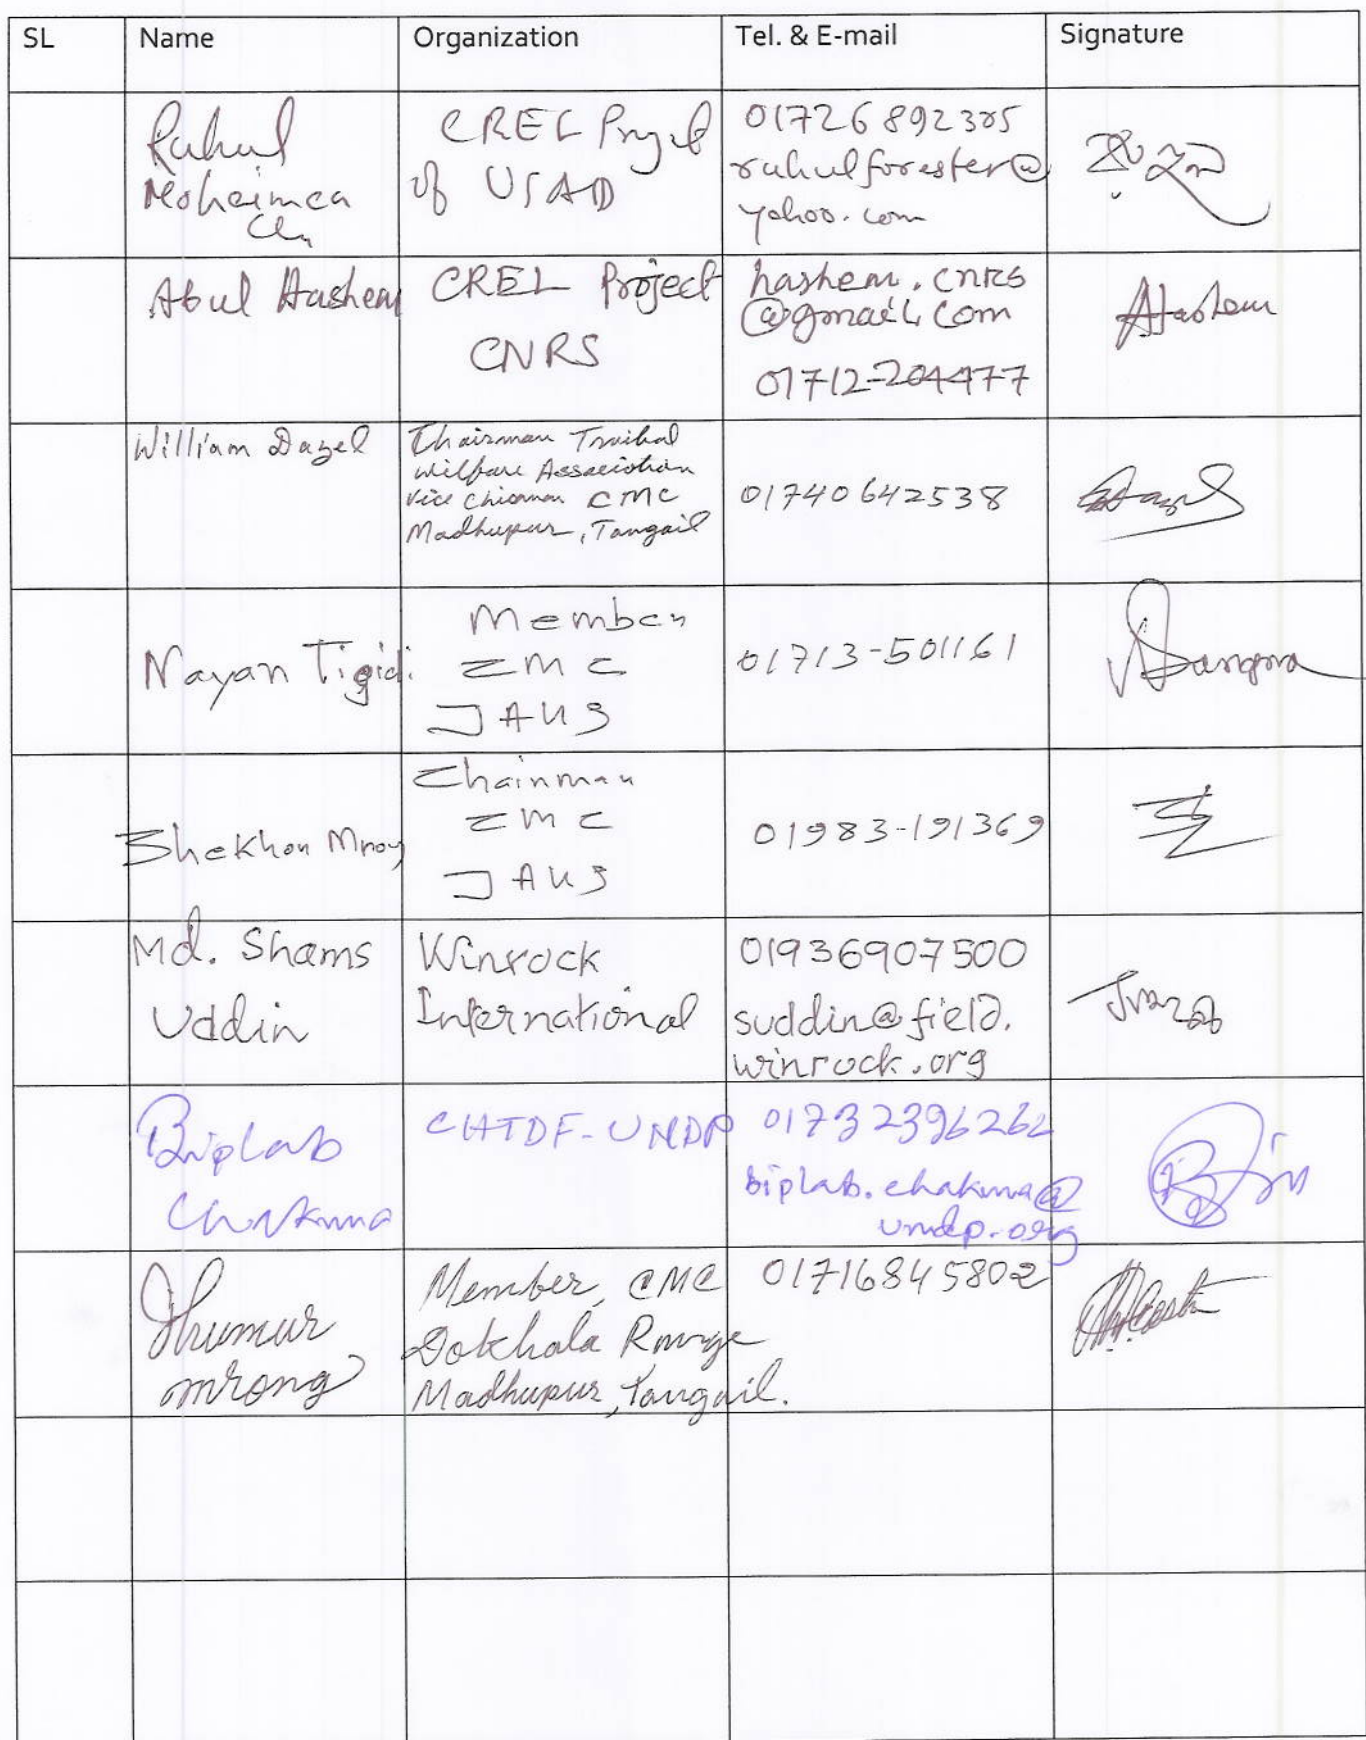 SL Name Organization Tel. & E-mail Signature
Ruhul
Mohaimen
CREL Project
of USAID
01726892305
ruhulforester@
yahoo.com
Abul Hashem
CREL Project
CNRS
hashem.cnrs
@gmail.com
01712-204477
AHashem
William Dazel
Chairman Traibal
Wilfare Association
Vice Chairman CMC
Madhupur, Tangail
01740642538
Nayan Tigidi
Member
CMC
JAUS
01713-501161
Shekhor Mrong
Chairman
CMC
JAUS
01983-191369
Md. Shams
Uddin
Winrock
International
01936907500
suddin@field.
winrock.org
Biplab
Chakma
CHTDF-UNDP
01732396262
biplab.chakma@
undp.org
Jhumur
mrong
Member, CMC
Dokhala Range
Madhupur, Tangail.
01716845802